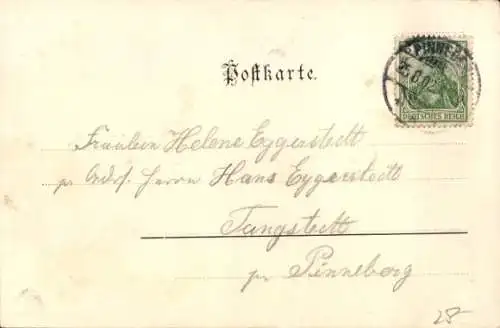 PINNEBERG
Postkarte.
DEUTSCHES REICH
Fräulein Helene Eggerstedt
pr Adrs. Herrn Hans Eggerstedt
Tangstedt
pr Pinneberg
28